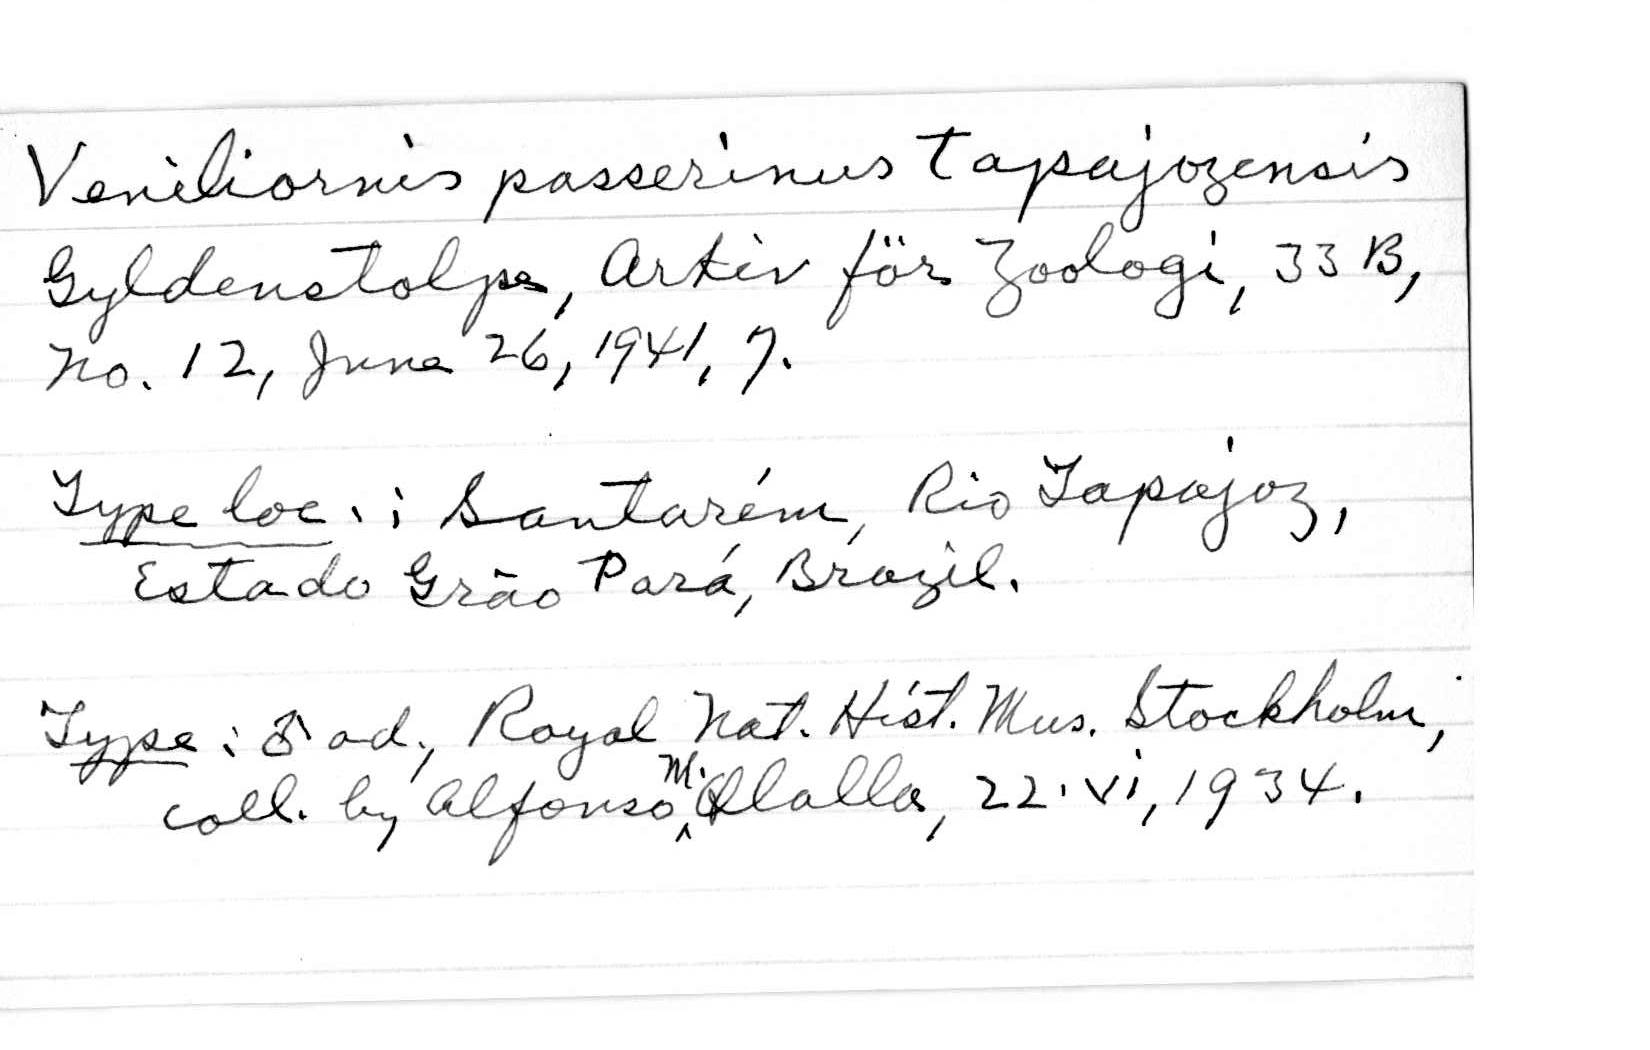 Veniliornis passerinus tapajozensis
Gyldenstolpe, Arkiv för Zoologi, 33 B,
No. 12, June 26, 1941, 7.
Type loc.: Santarém, Rio Tapajoz,
Estado Grão Pará, Brazil.
Type: ♂ ad., Royal Nat. Hist. Mus. Stockholm,
coll. by Alfonso M. Olalla, 22.vi,1934.